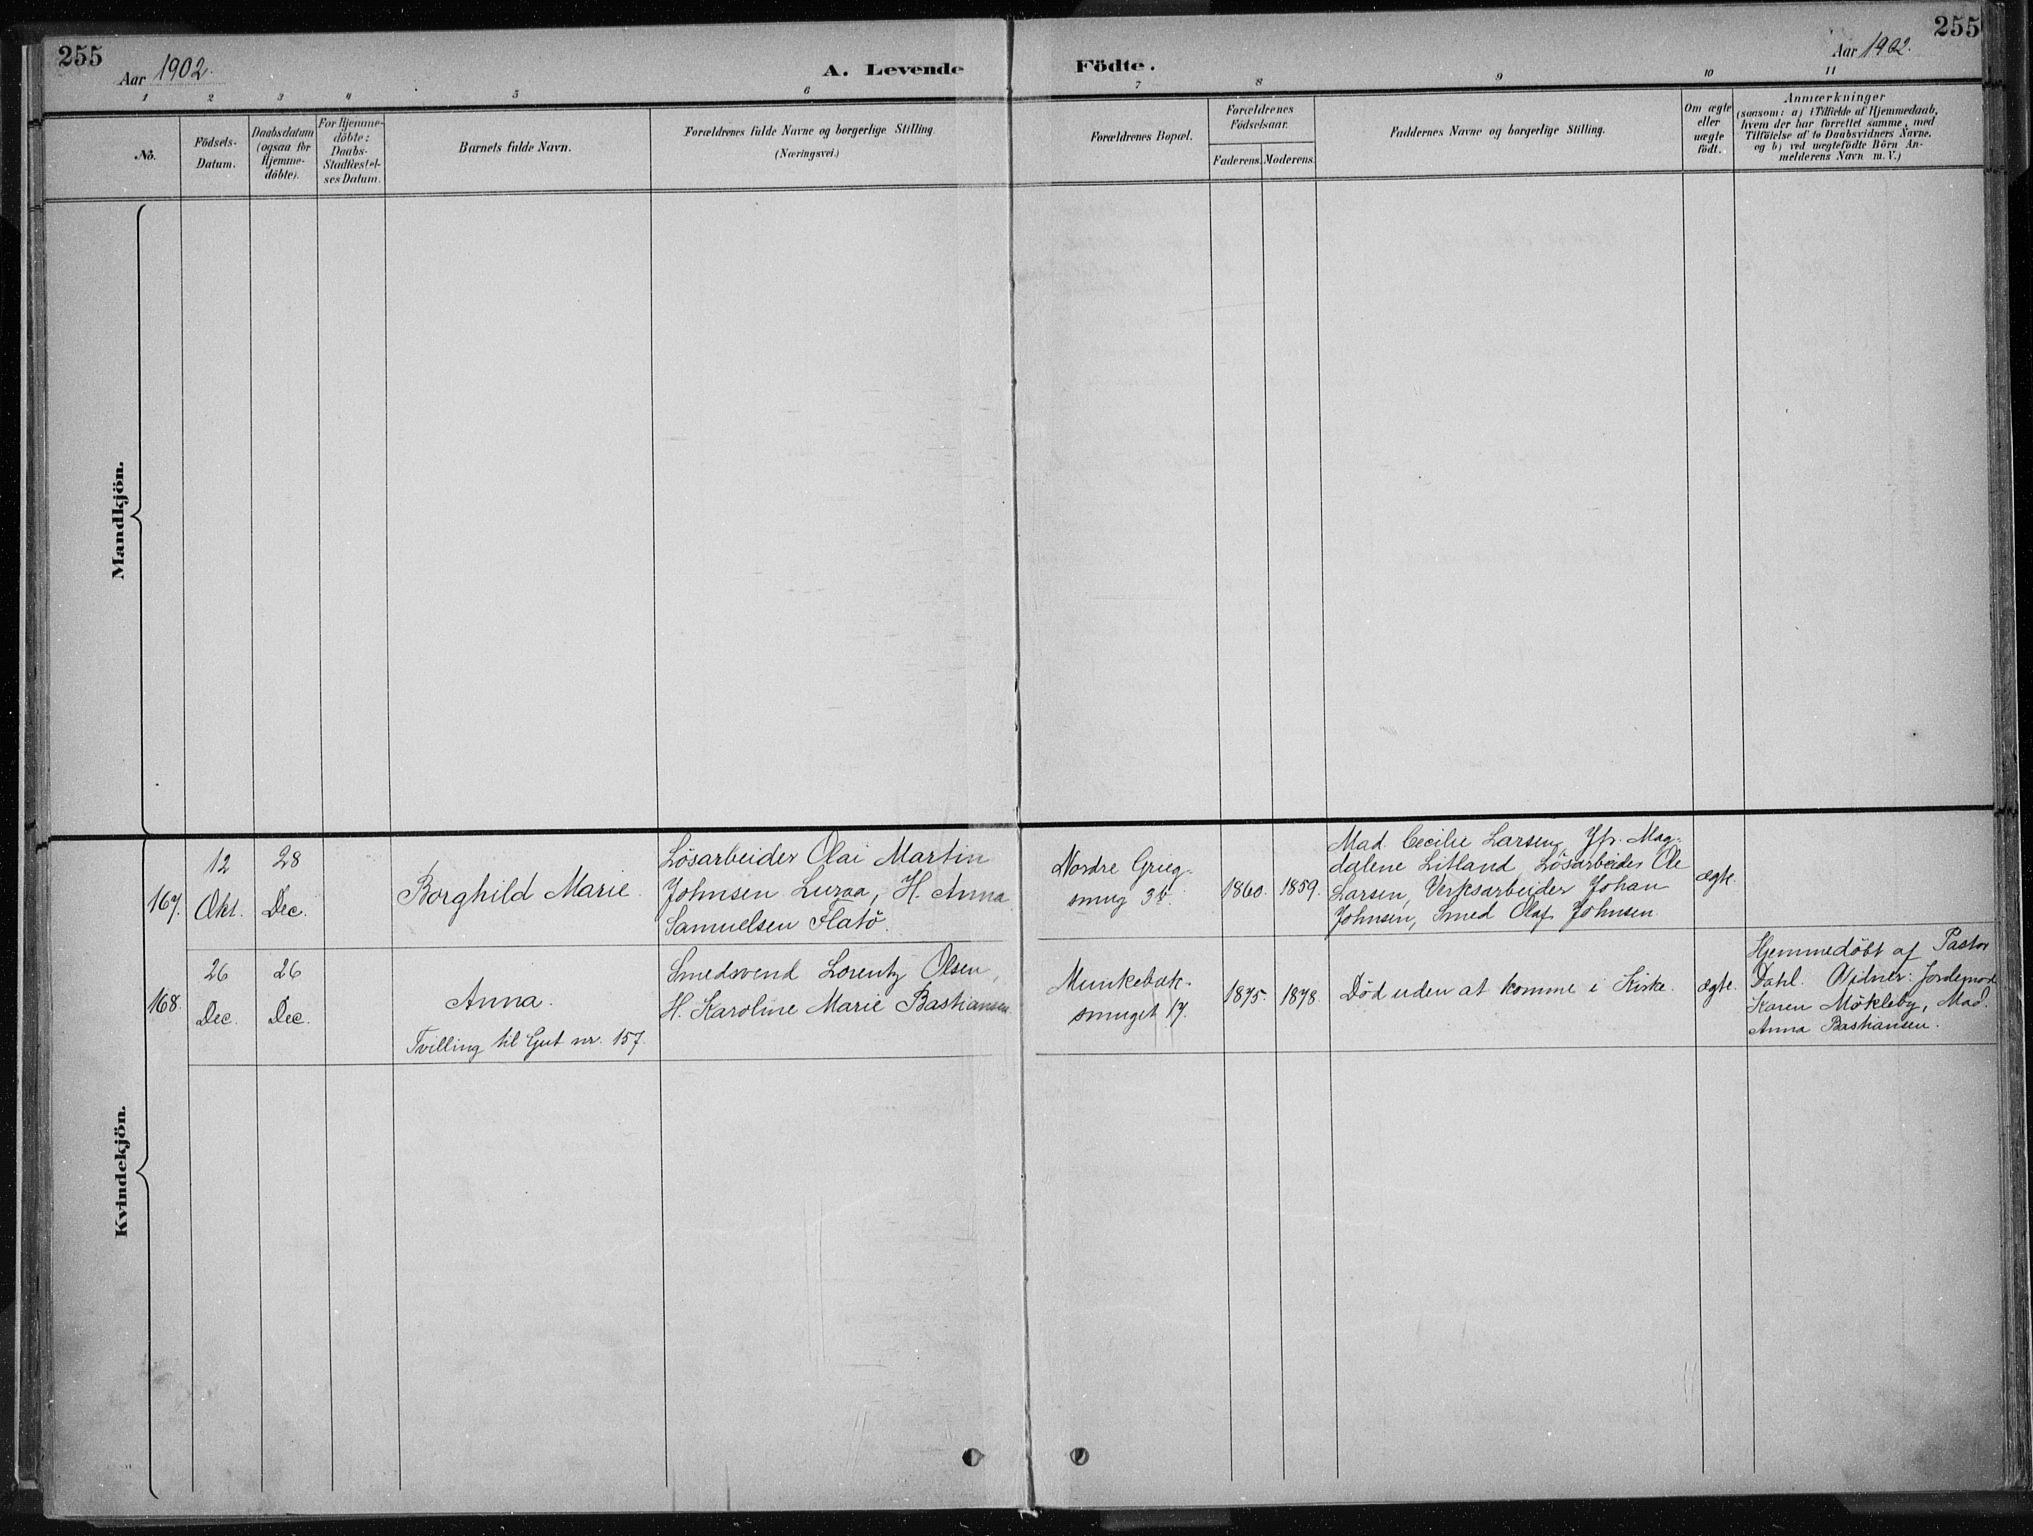 255
Aar 1902.
A. Levende Födte.
Aar 1902.
255
1 2 3 4 5 6 7 8 9 10 11
No.
Födsels-
Datum.
Daabsdatum
(ogsaa for
Hjemme-
döbte).
For Hjemme-
döbte:
Daabs-
Stadfæstel-
ses Datum.
Barnets fulde Navn.
Forældrenes fulde Navne og borgerlige Stilling.
(Næringsvei.)
Forældrenes Bopæl.
Forældrenes
Födselsaar.
Faderens. Moderens.
Faddernes Navne og borgerlige Stilling.
Om ægte
eller
uægte
födt.
Anmærkninger
(saasom: a) i Tilfælde af Hjemmedaab,
hvem der har forrettet samme, med
Tilföielse af to Daabsvidners Navne.
og b) ved uægtefödte Börn An-
melderens Navn m. V.)
Mandkjön.
Kvindekjön.
167.
12
Okt.
28
Dec.
Borghild Marie.
Lösarbeider Olai Martin
Johnsen Luraa, H. Anna
Samuelsen Flatö.
Nordre Grieg-
smug 3b.
1860. 1859.
Mad. Cecilie Larsen, Jfr. Mag-
dalene Litland, Lösarbeider Ole
Larsen, Verksarbeider Johan
Johnsen, Smed Olaf Johnsen
ægte.
168.
26
Dec.
26
Dec.
Anna.
Tvilling til Gut nr. 157.
Smedsvend Lorentz Olsen,
H. Karoline Marie Bastiansen
Munkebæk-
smuget 17.
1875. 1878.
Död uden at komme i Kirke.
ægte.
Hjemmedöbt af Pastor
Dahl. Vidner: Jordemor
Karen Mökleby, Mad.
Anna Bastiansen.